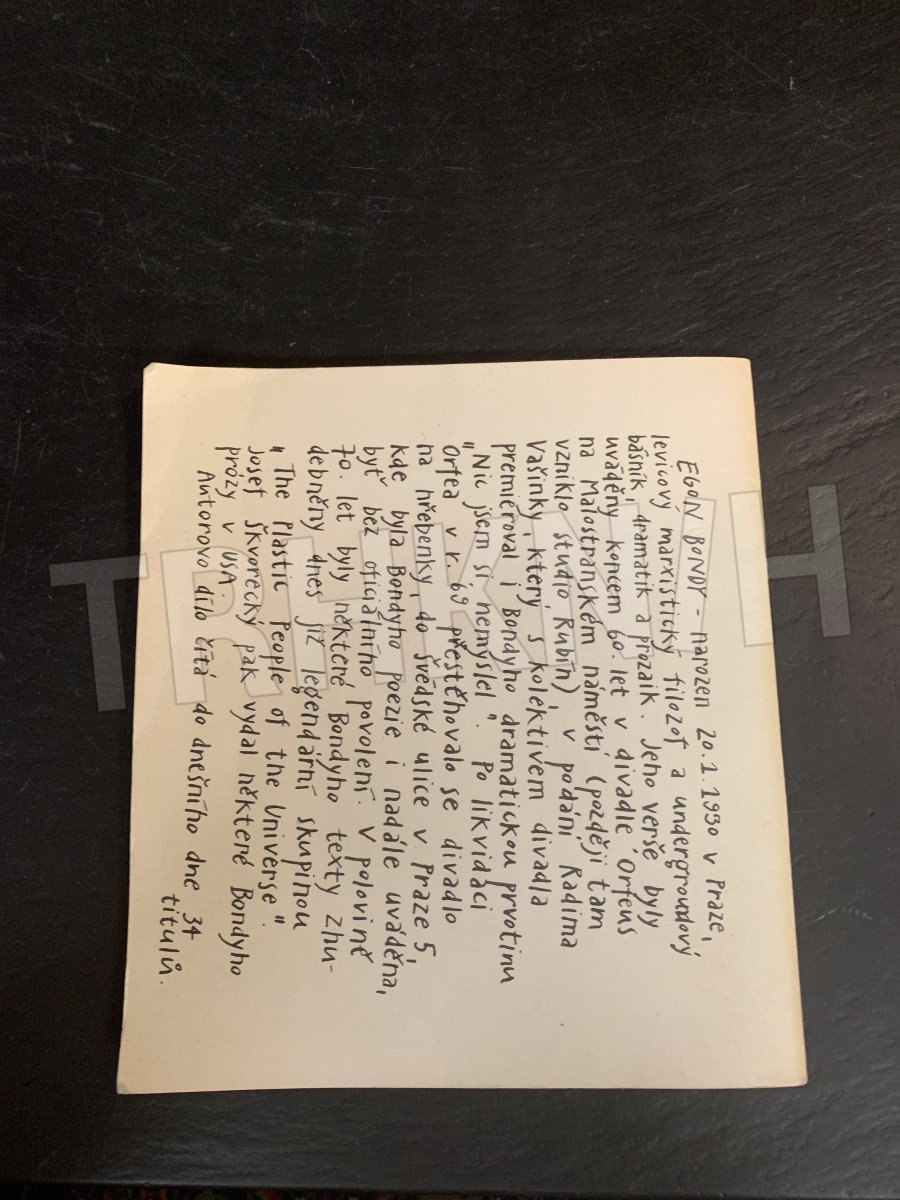 EGON BONDY - narozen 20.1.1930 v Praze,
levicový marxistický filozof a undergroundový
básník, dramatik a prozaik. Jeho verše byly
uváděny koncem 60. let v divadle Orfeus
na Malostranském náměstí (později tam
vzniklo studio Rubín) v podání Radima
Vašinky, který s kolektivem divadla
premiéroval i Bondyho dramatickou prvotinu
"Nic jsem si nemyslel". Po likvidaci
Orfea v r. 69 přestěhovalo se divadlo
na hřebenky, do Švédské ulice v Praze 5,
kde byla Bondyho poezie i nadále uváděna,
byť bez oficiálního povolení. V polovině
70. let byly některé Bondyho texty zhu-
debněny dnes již legendární skupinou
"The Plastic People of the Universe".
Josef Škvorecký pak vydal některé Bondyho
prózy v USA.
Autorovo dílo čítá do dnešního dne 34
titulů.